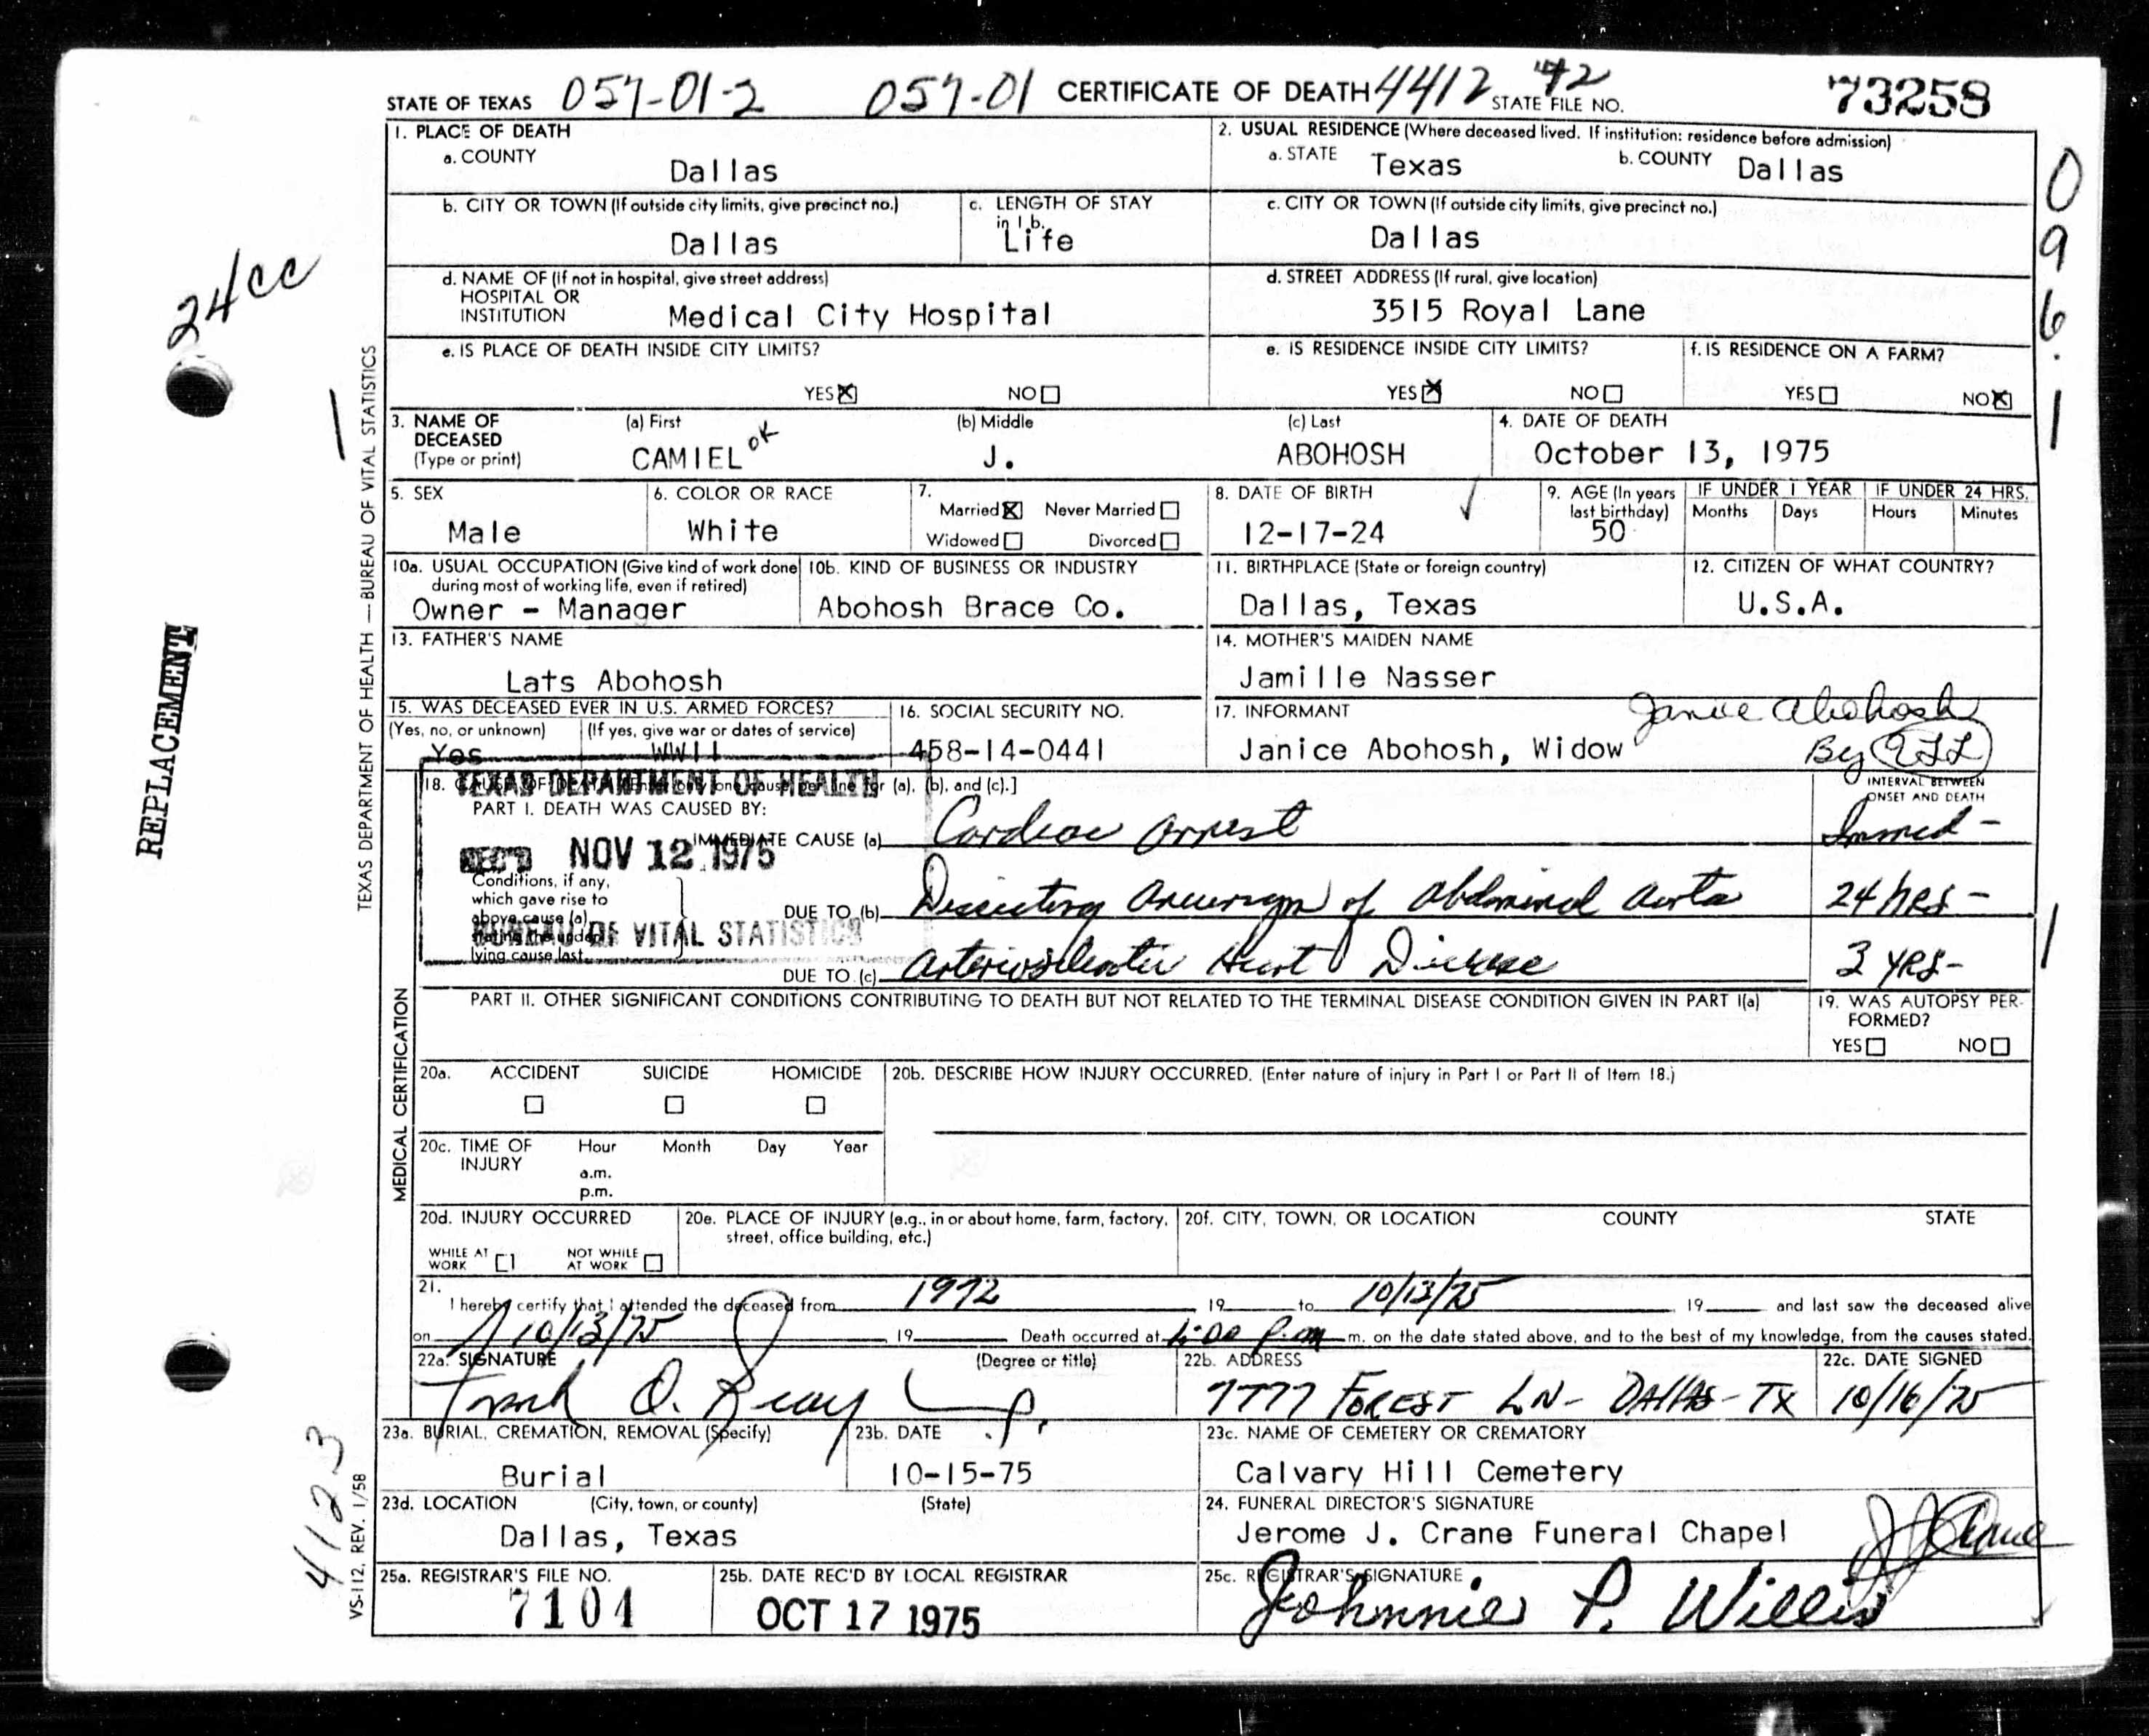 STATE OF TEXAS 057-01-2 057-01 CERTIFICATE OF DEATH 4412 42 STATE FILE NO. 73258
1. PLACE OF DEATH
a. COUNTY
Dallas
2. USUAL RESIDENCE (Where deceased lived. If institution: residence before admission)
a. STATE Texas b. COUNTY Dallas
b. CITY OR TOWN (If outside city limits, give precinct no.)
Dallas
c. LENGTH OF STAY
in 1b.
Life
c. CITY OR TOWN (If outside city limits, give precinct no.)
Dallas
d. NAME OF (If not in hospital, give street address)
HOSPITAL OR
INSTITUTION Medical City Hospital
d. STREET ADDRESS (If rural, give location)
3515 Royal Lane
e. IS PLACE OF DEATH INSIDE CITY LIMITS?
YES NO
e. IS RESIDENCE INSIDE CITY LIMITS?
YES NO
f. IS RESIDENCE ON A FARM?
YES NO
3. NAME OF
DECEASED
(Type or print)
(a) First
CAMIEL OK
(b) Middle
J.
(c) Last
ABOHOSH
4. DATE OF DEATH
October 13, 1975
5. SEX
Male
6. COLOR OR RACE
White
7.
Married Never Married
Widowed Divorced
8. DATE OF BIRTH
12-17-24
9. AGE (In years
last birthday)
50
IF UNDER 1 YEAR
Months Days
IF UNDER 24 HRS.
Hours Minutes
10a. USUAL OCCUPATION (Give kind of work done
during most of working life, even if retired)
Owner - Manager
10b. KIND OF BUSINESS OR INDUSTRY
Abohosh Brace Co.
11. BIRTHPLACE (State or foreign country)
Dallas, Texas
12. CITIZEN OF WHAT COUNTRY?
U.S.A.
13. FATHER'S NAME
Lats Abohosh
14. MOTHER'S MAIDEN NAME
Jamille Nasser
15. WAS DECEASED EVER IN U.S. ARMED FORCES?
(Yes, no, or unknown) (If yes, give war or dates of service)
Yes WWII
16. SOCIAL SECURITY NO.
458-14-0441
17. INFORMANT
Janice Abohosh, Widow
Janice Abohosh
By
TEXAS DEPARTMENT OF HEALTH
REC'D NOV 12 1975
BUREAU OF VITAL STATISTICS
18. (a), (b), and (c).]
INTERVAL BETWEEN
ONSET AND DEATH
PART I. DEATH WAS CAUSED BY:
IMMEDIATE CAUSE (a) Cardiac arrest Immed-
Conditions, if any,
which gave rise to
above cause (a)
stating the under-
lying cause last.
DUE TO (b) Dissecting aneurysm of abdominal aorta 24 hrs-
DUE TO (c) arteriosclerotic Heart Disease 3 yrs-
PART II. OTHER SIGNIFICANT CONDITIONS CONTRIBUTING TO DEATH BUT NOT RELATED TO THE TERMINAL DISEASE CONDITION GIVEN IN PART I(a)
19. WAS AUTOPSY PER-
FORMED?
YES NO
20a. ACCIDENT SUICIDE HOMICIDE
20b. DESCRIBE HOW INJURY OCCURRED. (Enter nature of injury in Part I or Part II of Item 18.)
20c. TIME OF
INJURY
Hour Month Day Year
a.m.
p.m.
20d. INJURY OCCURRED
WHILE AT
WORK
NOT WHILE
AT WORK
20e. PLACE OF INJURY (e.g., in or about home, farm, factory,
street, office building, etc.)
20f. CITY, TOWN, OR LOCATION COUNTY STATE
21.
I hereby certify that I attended the deceased from 1972 19 to 10/13/75, 19 and last saw the deceased alive
on 10/13/75 19 Death occurred at p.m m. on the date stated above, and to the best of my knowledge, from the causes stated.
22a. SIGNATURE (Degree or title)
22b. ADDRESS
7777 FOREST LN- DALLAS- TX
22c. DATE SIGNED
10/16/75
23a. BURIAL, CREMATION, REMOVAL (Specify)
Burial
23b. DATE
10-15-75
23c. NAME OF CEMETERY OR CREMATORY
Calvary Hill Cemetery
23d. LOCATION (City, town, or county) (State)
Dallas, Texas
24. FUNERAL DIRECTOR'S SIGNATURE
Jerome J. Crane Funeral Chapel
JJ Crane
25a. REGISTRAR'S FILE NO.
7104
25b. DATE REC'D BY LOCAL REGISTRAR
OCT 17 1975
25c. REGISTRAR'S SIGNATURE
Johnnie P. Willis
TEXAS DEPARTMENT OF HEALTH — BUREAU OF VITAL STATISTICS
MEDICAL CERTIFICATION
VS-112, REV. 1/58
REPLACEMENT
24cc
1
4123
096.1
1